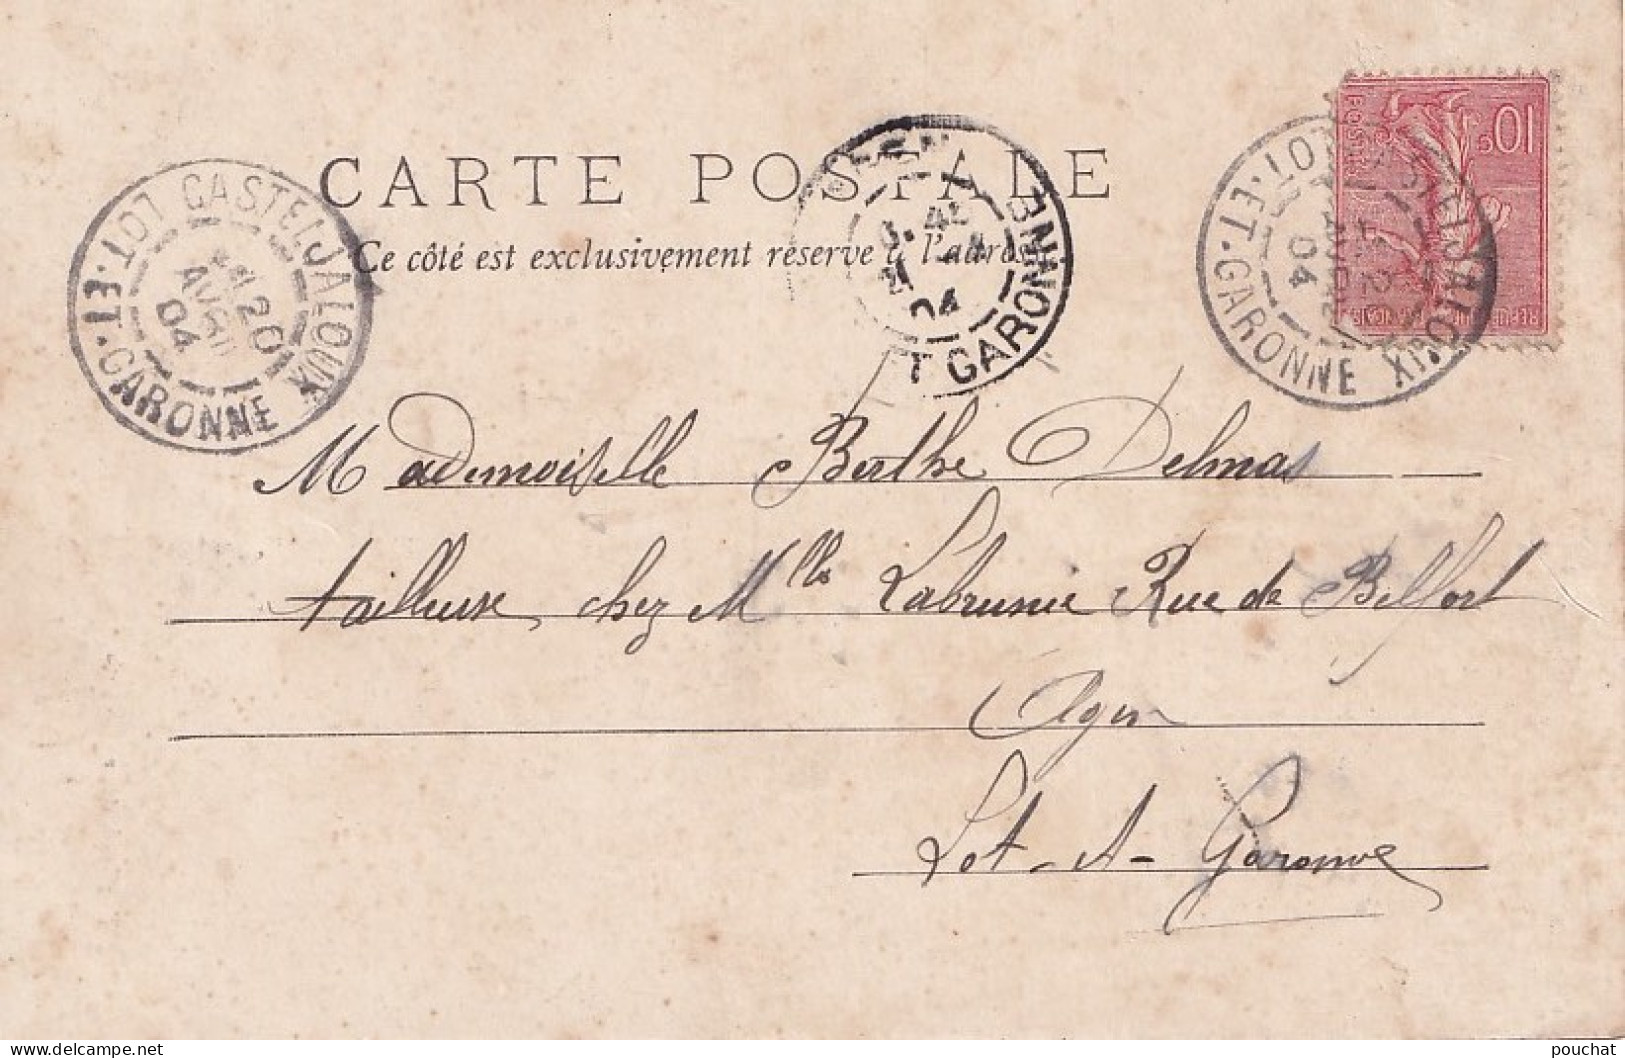 CARTE POSTALE
Ce côté est exclusivement réservé à l'adresse
CASTELJALOUX
LOT.ET.GARONNE
20
AVRIL
04
45
04
T GARONNE
CASTELJALOUX
LOT.ET.GARONNE
04
10c
POSTES
Mademoiselle Berthe Delmas
tailleuse chez Mlle Labrunie Rue de Belfort
Agen
Lot-A-Garonne
pouchat